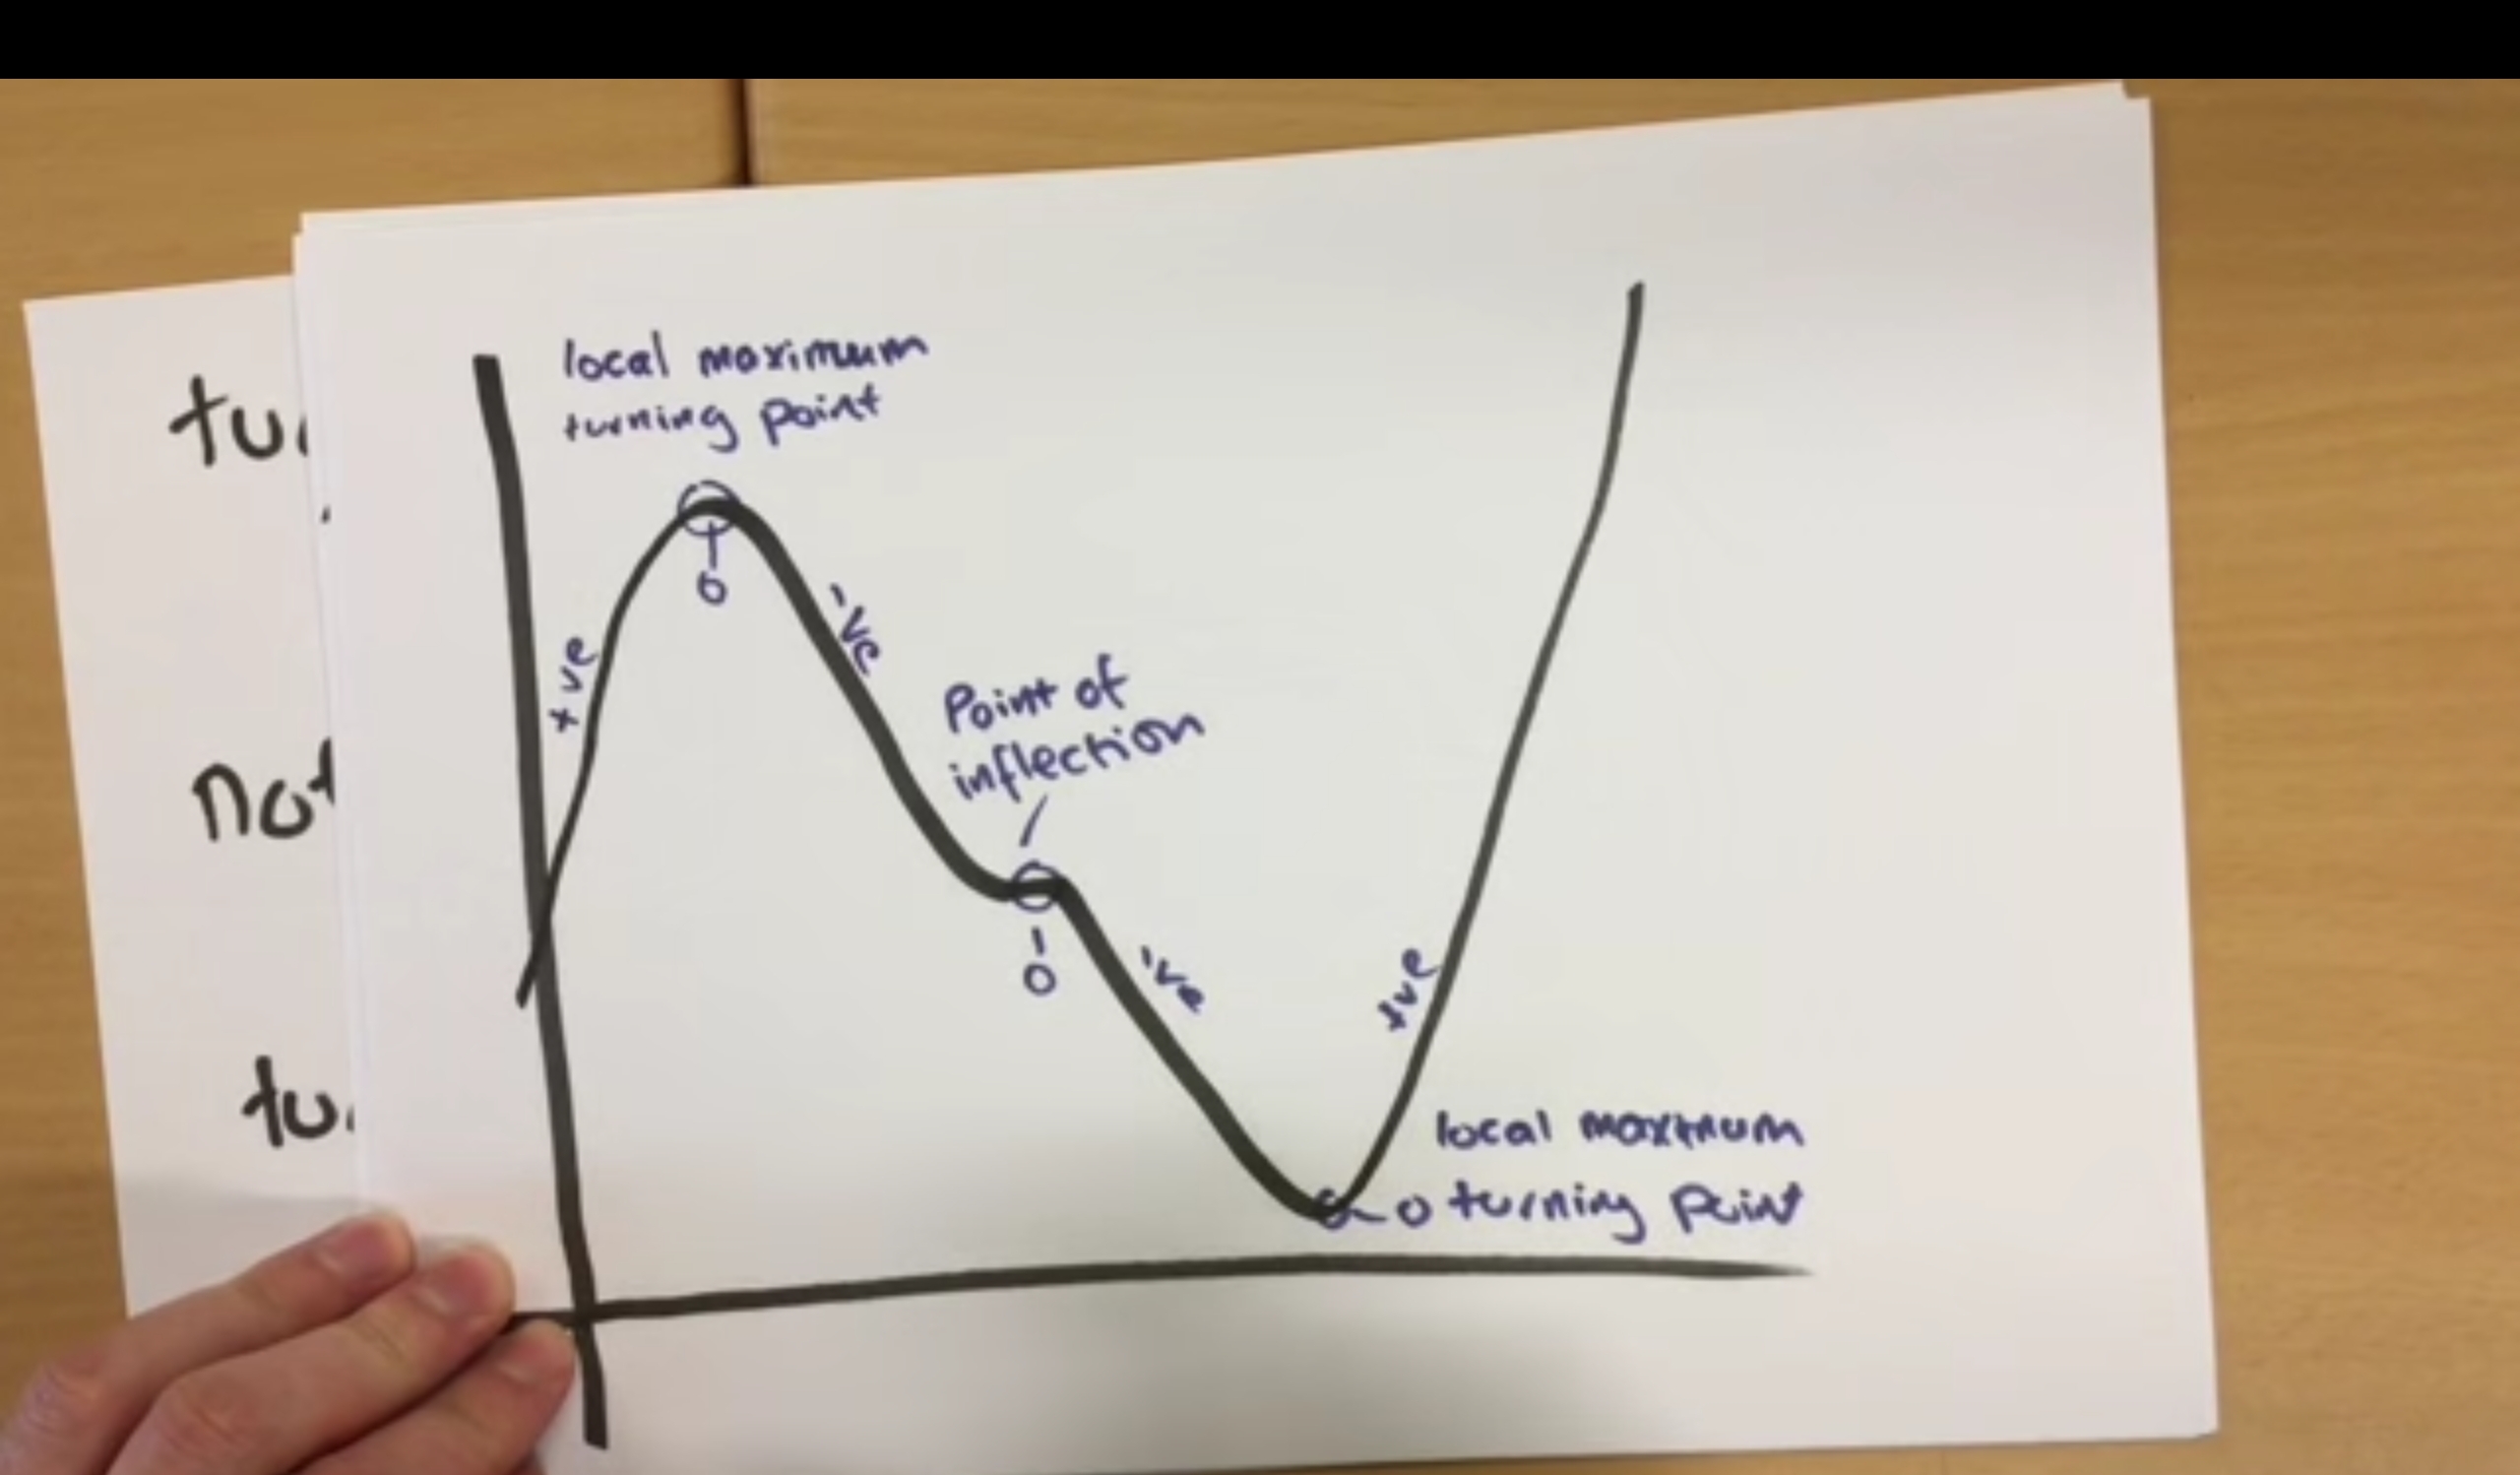 local maximum
turning point
0
+ve
-ve
Point of
inflection
0
-ve
+ve
local maximum
0 turning point
not